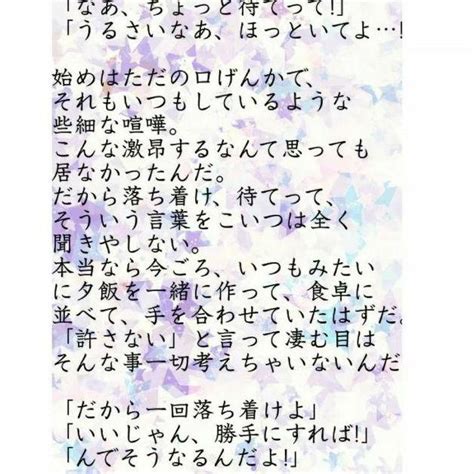 「なあ、ちょっと待てって!」
「うるさいなあ、ほっといてよ…!
始めはただの口げんかで、
それもいつもしているような
些細な喧嘩。
こんな激昂するなんて思っても
居なかったんだ。
だから落ち着け、待てって、
そういう言葉をこいつは全く
聞きやしない。
本当なら今ごろ、いつもみたい
に夕飯を一緒に作って、食卓に
並べて、手を合わせていたはずだ。
「許さない」と言って凄む目は
そんな事一切考えちゃいないんだ
「だから一回落ち着けよ」
「いいじゃん、勝手にすれば!」
「んでそうなるんだよ!」